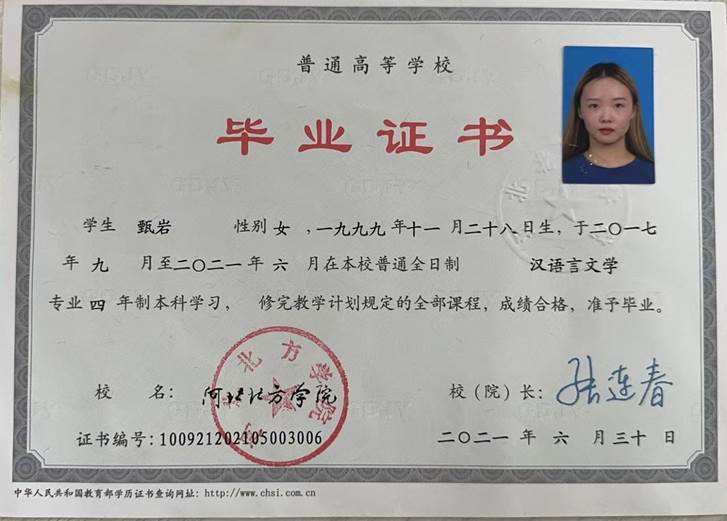 普通高等学校
毕业证书
学生 甄岩 性别 女 ，一九九九年十一月二十八日生，于二〇一七
年九月至二〇二一年六月在本校普通全日制 汉语言文学
专业四年制本科学习， 修完教学计划规定的全部课程，成绩合格，准予毕业。
校 名： 河北北方学院
校（院）长： 张连春
河北北方学院
证书编号：100921202105003006
二〇二一年六月三十日
中华人民共和国教育部学历证书查询网址：http://www.chsi.com.cn